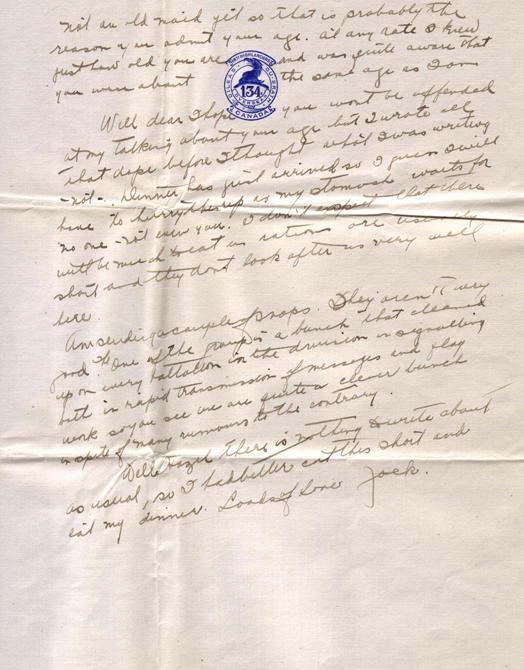 not an old maid yet so that is probably the
reason you admit your age. At any rate I knew
just how old you are and was quite aware that
you were about the same age as I am
134
CANADA
Well dear I hope you won't be offended
at my talking about your age but I wrote all
that dope before I thought what I was writing
-not-. Dinner has just arrived so I guess I will
have to hurry up as my stomach waits for
no one - not even you. I don't expect that there
will be much to eat as rations are usually
short and they dont look after us very well
here.
Am sending a couple of snaps. They aren't very
good. One of the group is a bunch that cleaned
up on every battalion in the division in signalling
both in rapid transmission of messages and flag
work so you see we are quite a clever bunch
in spite of many rumours to the contrary.
Well Hazel there is nothing to write about
as usual, so I had better cut this short and
eat my dinner. Loads of love Jack.